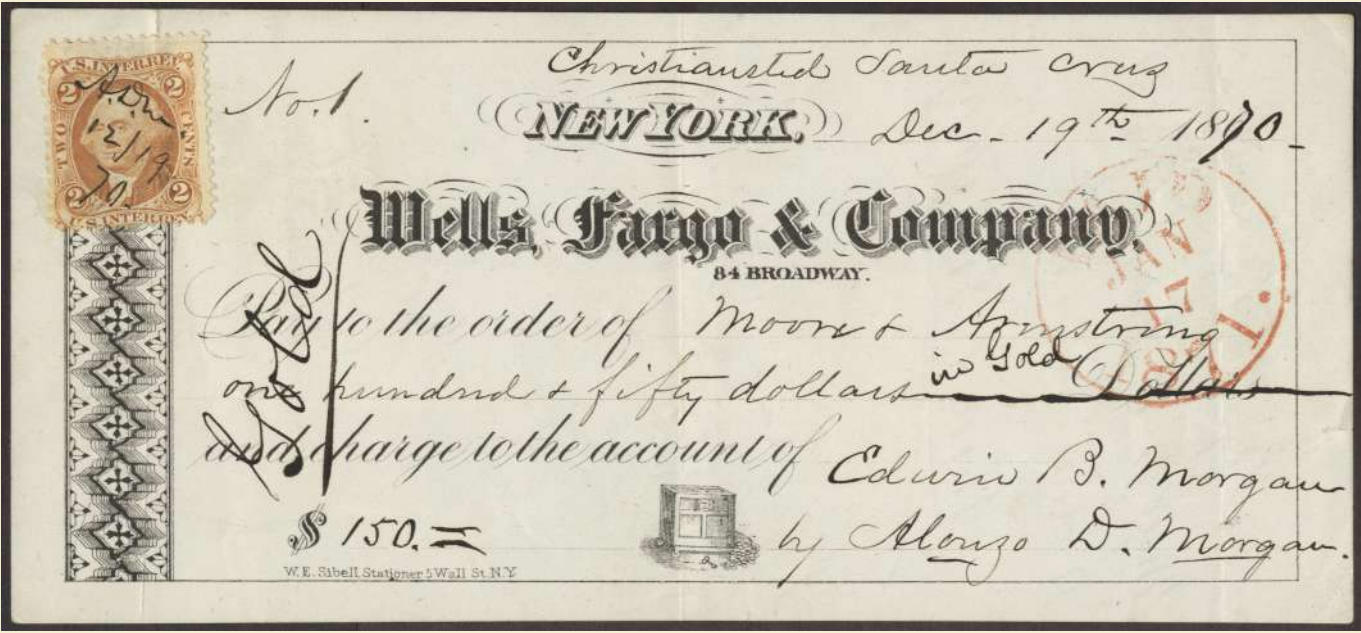 U.S. INTER. REV.
2 2
TWO CENTS
A.D.M.
12/19
70.
2 2
U.S. INTER. REV.
Christiansted Santa Cruz
No. 1.
NEW YORK, Dec. 19th 1870
Wells, Fargo & Company,
84 BROADWAY.
JAN
17
Gold
Pay to the order of Moore & Armstrong
one hundred & fifty dollars in Gold Dollars
and charge to the account of Edwin B. Morgan
$ 150.= by Alonzo D. Morgan.
W. E. Sibell Stationer 5 Wall St. N.Y.